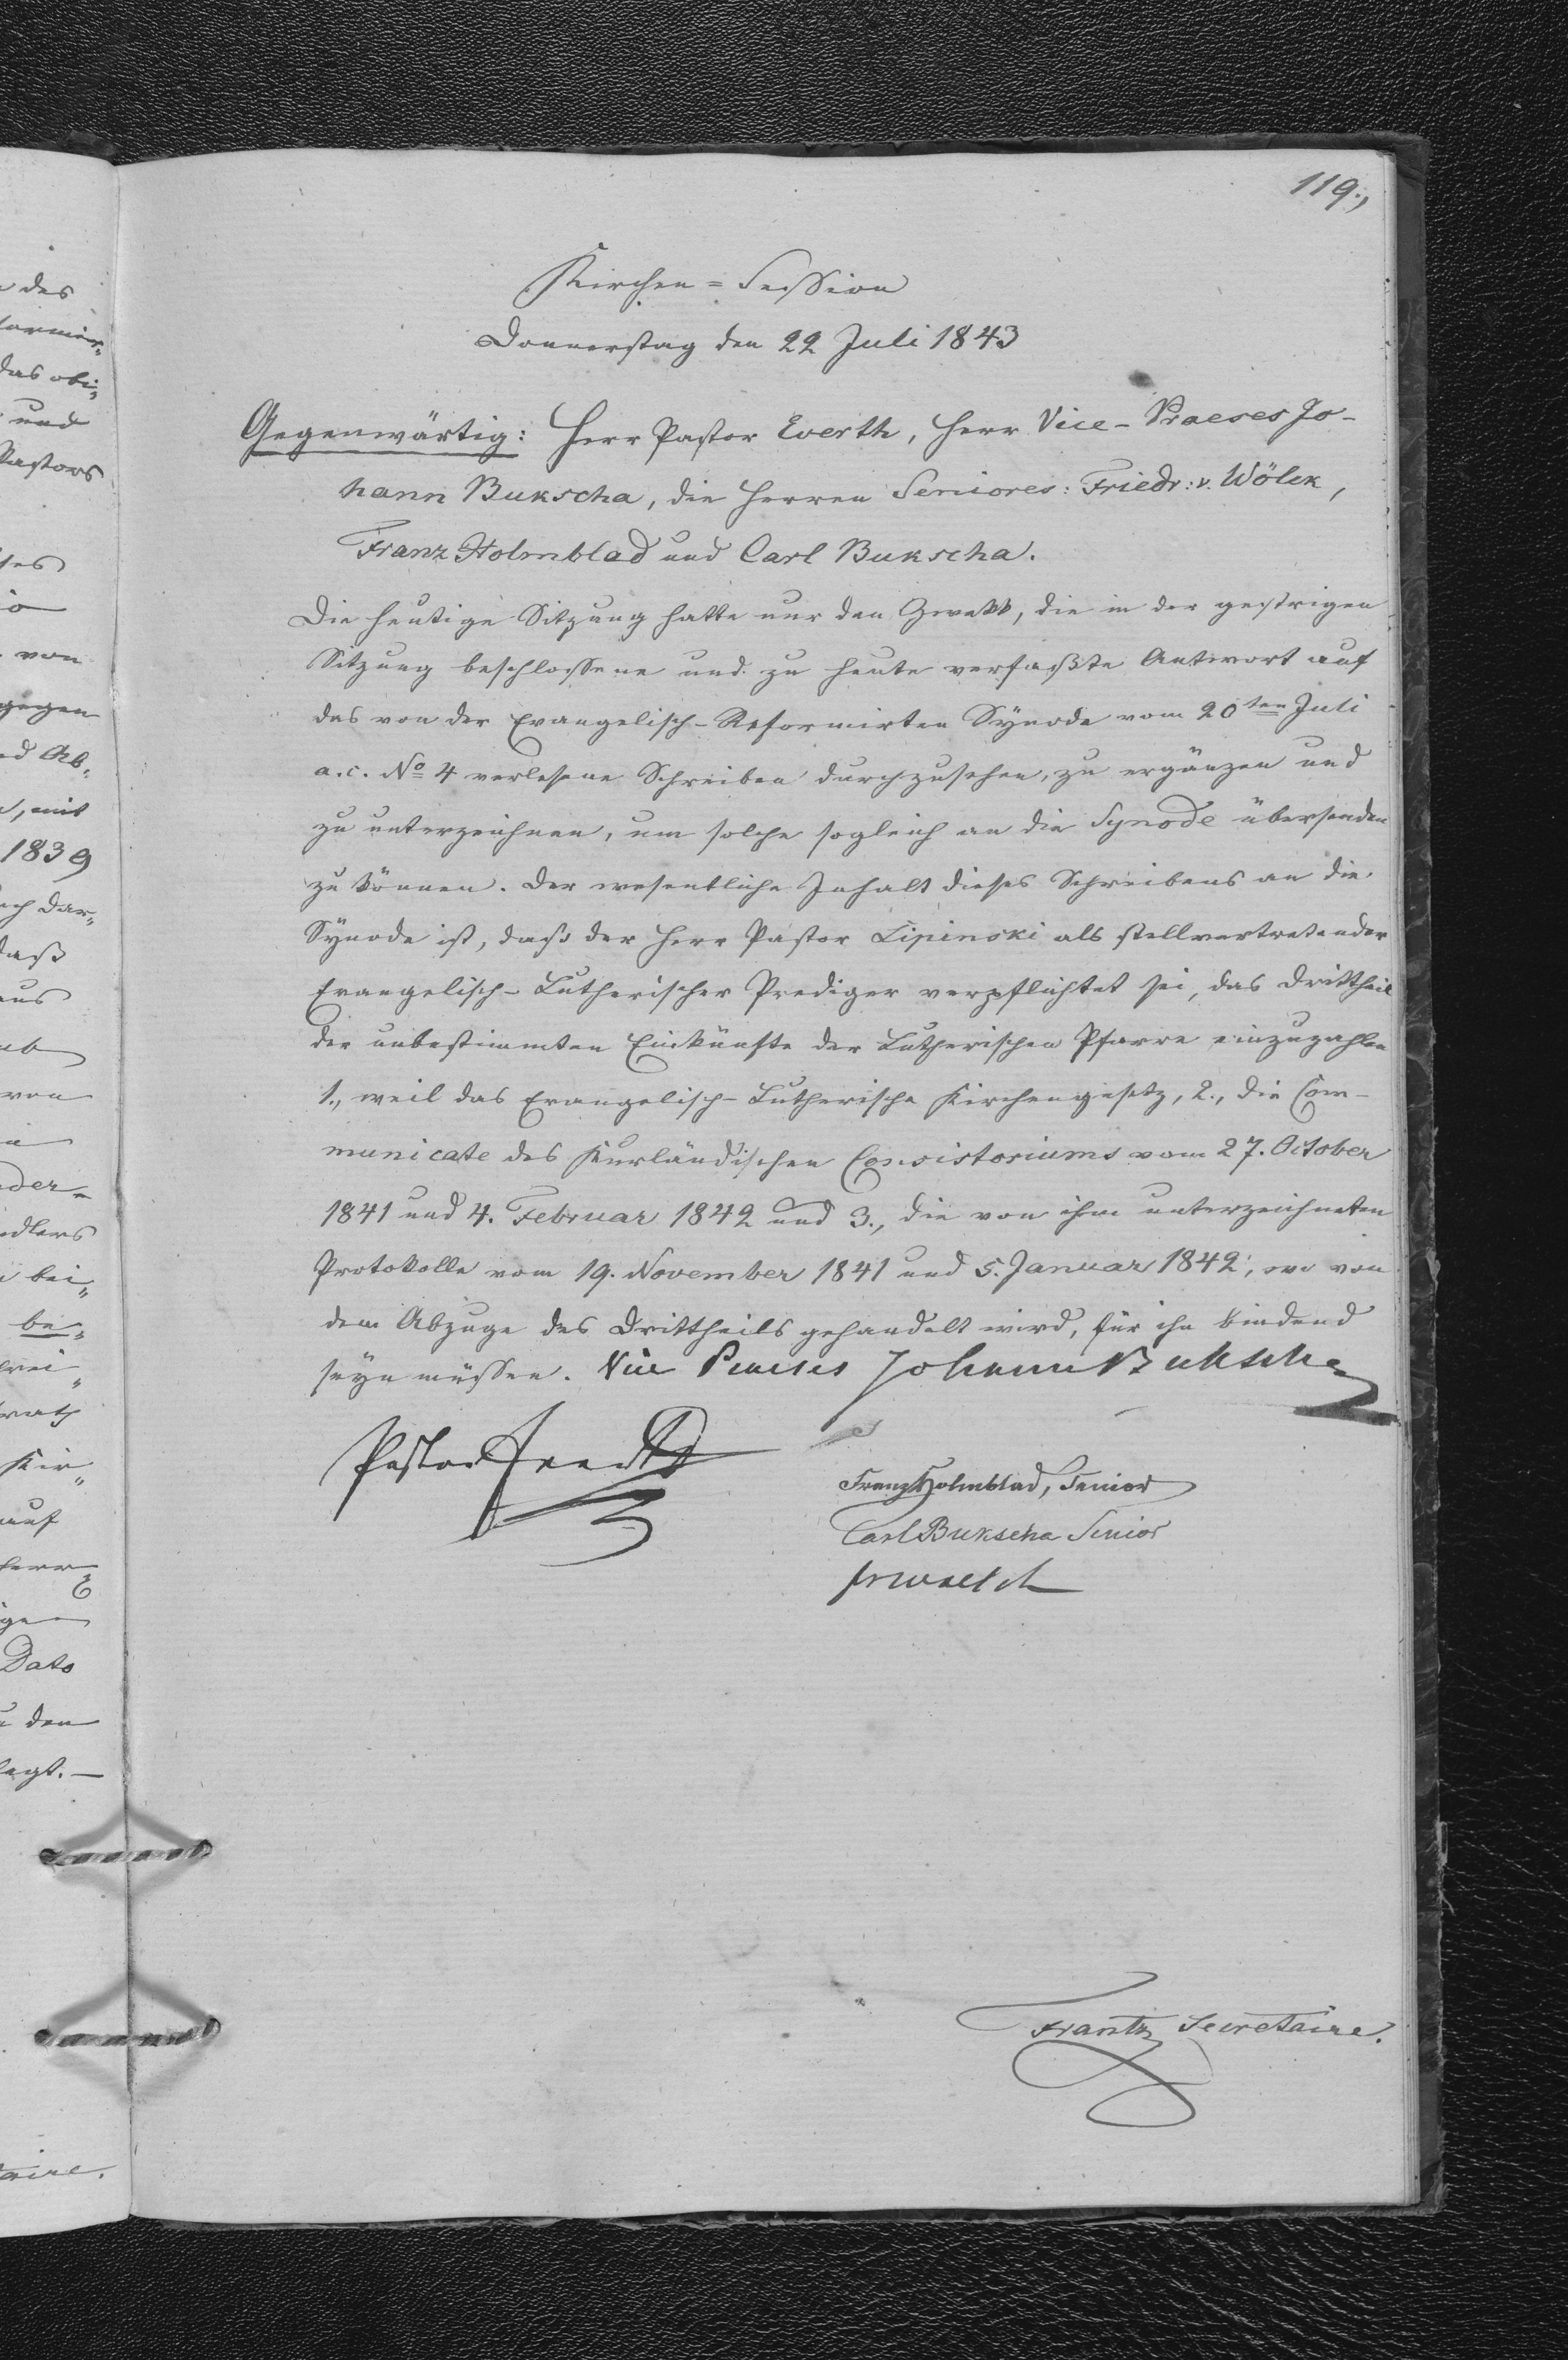 119.,
Kirchen=Session
Donnerstag den 22 Juli 1843
Gegenwärtig: Herr Pastor Everth, Herr Vice-Praeses Jo-
hann Bukscha, die Herren Seniores: Friedr: v. Wölck,
Franz Holmblad und Carl Bukscha.
Die heutige Sitzung hatte nur den Zwekk, die in der gestrigen
Sitzung beschlossene und zu heute verfaßte Antwort auf
das von der Evangelisch-Reformirten Synode vom 20ten Juli
a. c. No 4 verlesene Schreiben durchzusehen, zu ergänzen und
zu unterzeichnen, um solche sogleich an die Synode übersenden
zu können. Der wesentliche Inhalt dieses Schreibens an die
Synode ist, daß der Herr Pastor Lipinski als stellvertretender
Evangelisch-Lutherischer Prediger verpflichtet sei, das Drittheil
der unbestimmten Einkünfte der Lutherischen Pfarre einzuzahlen
1., weil das Evangelisch-Lutherische Kirchengesetz, 2., die Com-
municate des Kurländischen Consistoriums vom 27. October
1841 und 4. Februar 1842 und 3., die von ihm unterzeichneten
Protokolle vom 19. November 1841 und 5. Januar 1842, wo von
dem Abzuge des Drittheils gehandelt wird, für ihn bindend
seyn müssen. Vice Praeses Johann Bukscha
Pastor Everth
Franz Holmblad, Senior
Carl Bukscha Senior
Frantz Secretaire.
des
das obi=
und
Pastors
von
gegen
mit
1839
daß
aus
von
bei=
be=
auf
Dato
den